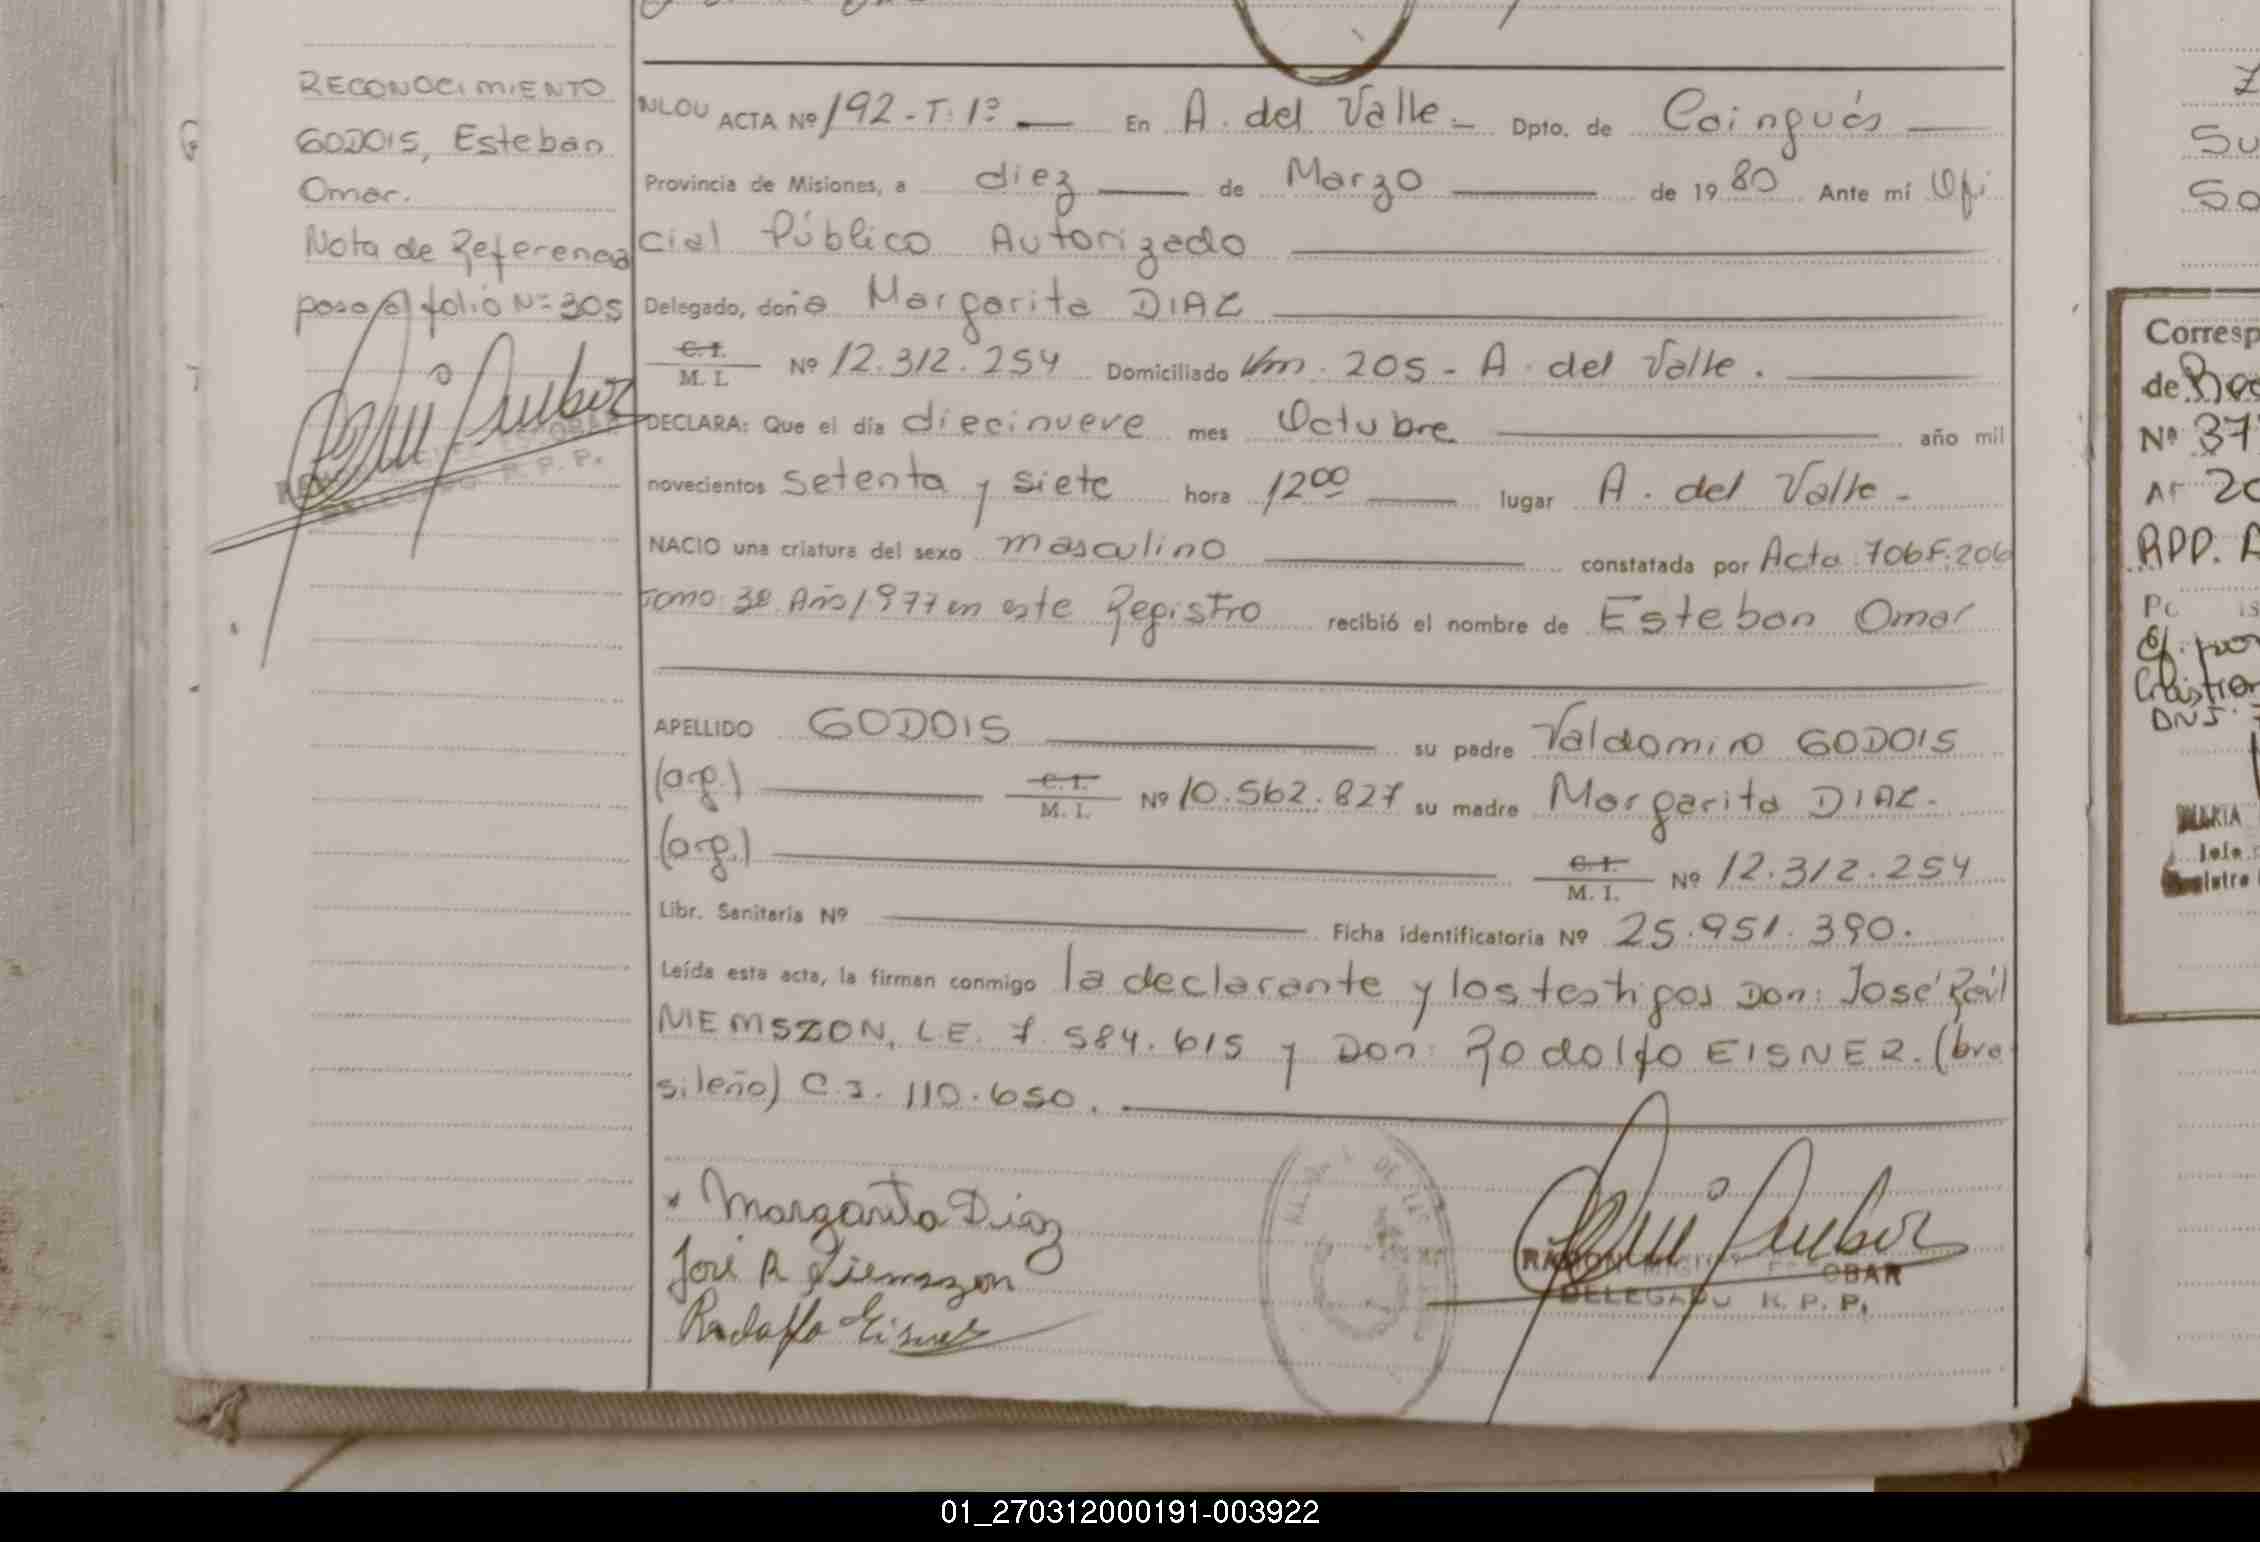 RECONOCIMIENTO
GODOIS, Esteban
Omar.
Nota de Referencia
pasa al folio Nº 305
NLOU ACTA Nº 192-T. 1º En A. del Valle - Dpto. de Caingúas
Provincia de Misiones, a diez de Marzo de 1980 Ante mí Ofi
cial Público Autorizado
Delegado, doña Margarita DIAZ
C.I. M. I. Nº 12.312.254 Domiciliado Km. 205 - A. del Valle.
DECLARA: Que el día diecinueve mes Octubre año mil
novecientos setenta y siete hora 12⁰⁰ lugar A. del Valle -
NACIO una criatura del sexo masculino constatada por Acta 706 F. 206
Tomo 3º Año 1977 en este Registro recibió el nombre de Esteban Omar
APELLIDO GODOIS su padre Valdomiro GODOIS
(arg.) C.I. M. I. Nº 10.562.827 su madre Margarita DIAZ.
(arg.) C.I. M. I. Nº 12.312.254
Libr. Sanitaria Nº Ficha identificatoria Nº 25.951.390.
Leída esta acta, la firman conmigo la declarante y los testigos Don: José Raúl
NIEMSZON, L.E. 7.584.615 y Don: Rodolfo EISNER. (bra
sileño) C.I. 110.650.
Margarita Diaz
José R Niemszon
Rodolfo Eisner
RAMON MIGUEL ESCOBAR
DELEGADO R. P. P.
Corresp
de
Nº 37
20
RPD. A
Cristian
DNI
MARIA
Jefe
Registro
01_270312000191-003922